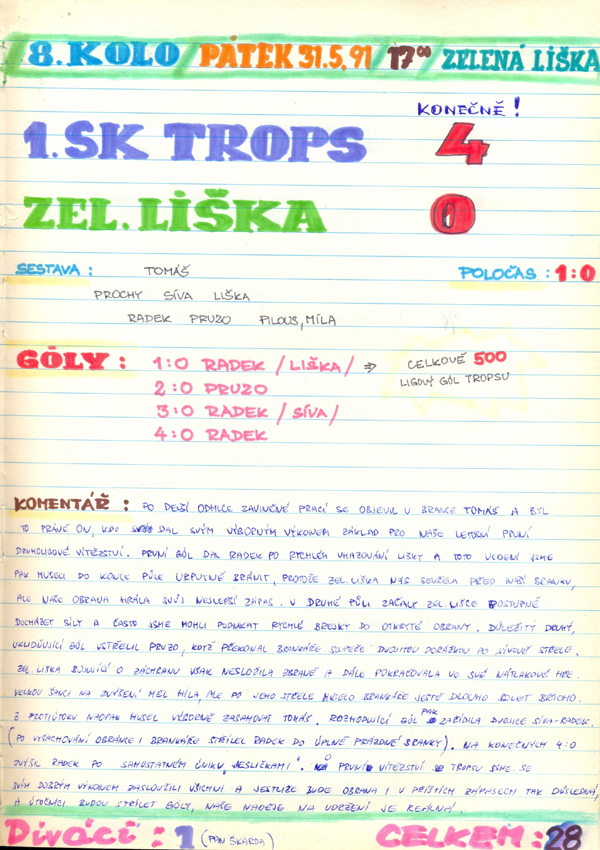 8. KOLO / PÁTEK 31.5.91 / 17⁰⁰ / ZELENÁ LIŠKA
KONEČNĚ!
1. SK TROPS 4
ZEL. LIŠKA 0
SESTAVA: TOMÁŠ POLOČAS: 1:0
PROCHY SÍVA LIŠKA
RADEK PRUZO PILOUS, MÍLA
GÓLY: 1:0 RADEK /LIŠKA/ ⇒ CELKOVĚ 500
LIGOVÝ GÓL TROPSU
2:0 PRUZO
3:0 RADEK /SÍVA/
4:0 RADEK
KOMENTÁŘ: PO DELŠÍ ODMLCE ZAVINĚNÉ PRACÍ SE OBJEVIL V BRANCE TOMÁŠ A BYL
TO PRÁVĚ ON, KDO DAL SVÝM VÝBORNÝM VÝKONEM ZÁKLAD PRO NAŠE LETOŠNÍ PRVNÍ
DRUHOLIGOVÉ VÍTĚZSTVÍ. PRVNÍ GÓL DAL RADEK PO RYCHLÉM VHAZOVÁNÍ LIŠKY A TOTO VEDENÍ JSME
PAK MUSELI DO KONCE PŮLE URPUTNĚ BRÁNIT, PROTOŽE ZEL. LIŠKA NÁS SEVŘELA PŘED NAŠÍ BRANKU,
ALE NAŠE OBRANA HRÁLA SVŮJ NEJLEPŠÍ ZÁPAS. V DRUHÉ PŮLI ZAČALY ZEL. LIŠCE POSTUPNĚ
DOCHÁZET SÍLY A ČASTO JSME MOHLI PODNIKAT RYCHLÉ BREJKY DO OTEVŘENÉ OBRANY. DŮLEŽITÝ DRUHÝ,
UKLIDŇUJÍCÍ GÓL VSTŘELIL PRUZO, KDYŽ PŘEKONAL BRANKÁŘE SOUPEŘE DVOJITOU DORÁŽKOU PO SÍVOVĚ STŘELE.
ZEL. LIŠKA BOJUJÍCÍ O ZÁCHRANU VŠAK NESLOŽILA ZBRANĚ A DÁLE POKRAČOVALA VE SVÉ NÁTLAKOVÉ HŘE.
VELKOU ŠANCI NA ZVÝŠENÍ MĚL MÍLA, ALE PO JEHO STŘELE MUSELO BRANKÁŘE JEŠTĚ DLOUHO BOLET BŘICHO.
Z PROTIÚTOKU NAOPAK MUSEL VÝBORNĚ ZASAHOVAT TOMÁŠ. ROZHODUJÍCÍ GÓL PAK ZAŘÍDILA DVOJICE SÍVA-RADEK.
(PO VYŠACHOVÁNÍ OBRÁNCE I BRANKÁŘE STŘÍLEL RADEK DO ÚPLNĚ PRÁZDNÉ BRANKY). NA KONEČNÝCH 4:0
ZVÝŠIL RADEK PO SAMOSTATNÉM ÚNIKU "JESLIČKAMI". PRVNÍ VÍTĚZSTVÍ TROPSU JSME SE
SVÝM DOBRÝM VÝKONEM ZASLOUŽILI VŠICHNI A JESTLIŽE BUDE OBRANA I V PŘÍŠTÍCH ZÁPASECH TAK DŮSLEDNÁ,
A ÚTOČNÍCI BUDOU STŘÍLET GÓLY, NAŠE NADĚJE NA UDRŽENÍ JE REÁLNÁ.
Diváci: 1 (PAN ŠKARDA) CELKEM: 28